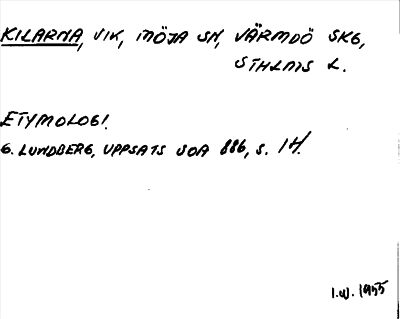 KILARNA, VIK, MÖJA SN, VÄRMDÖ SKG,
STHLMS L.
ETYMOLOGI.
G. LUNDBERG, UPPSATS SOA 886, S. 14.
I.W. 1955